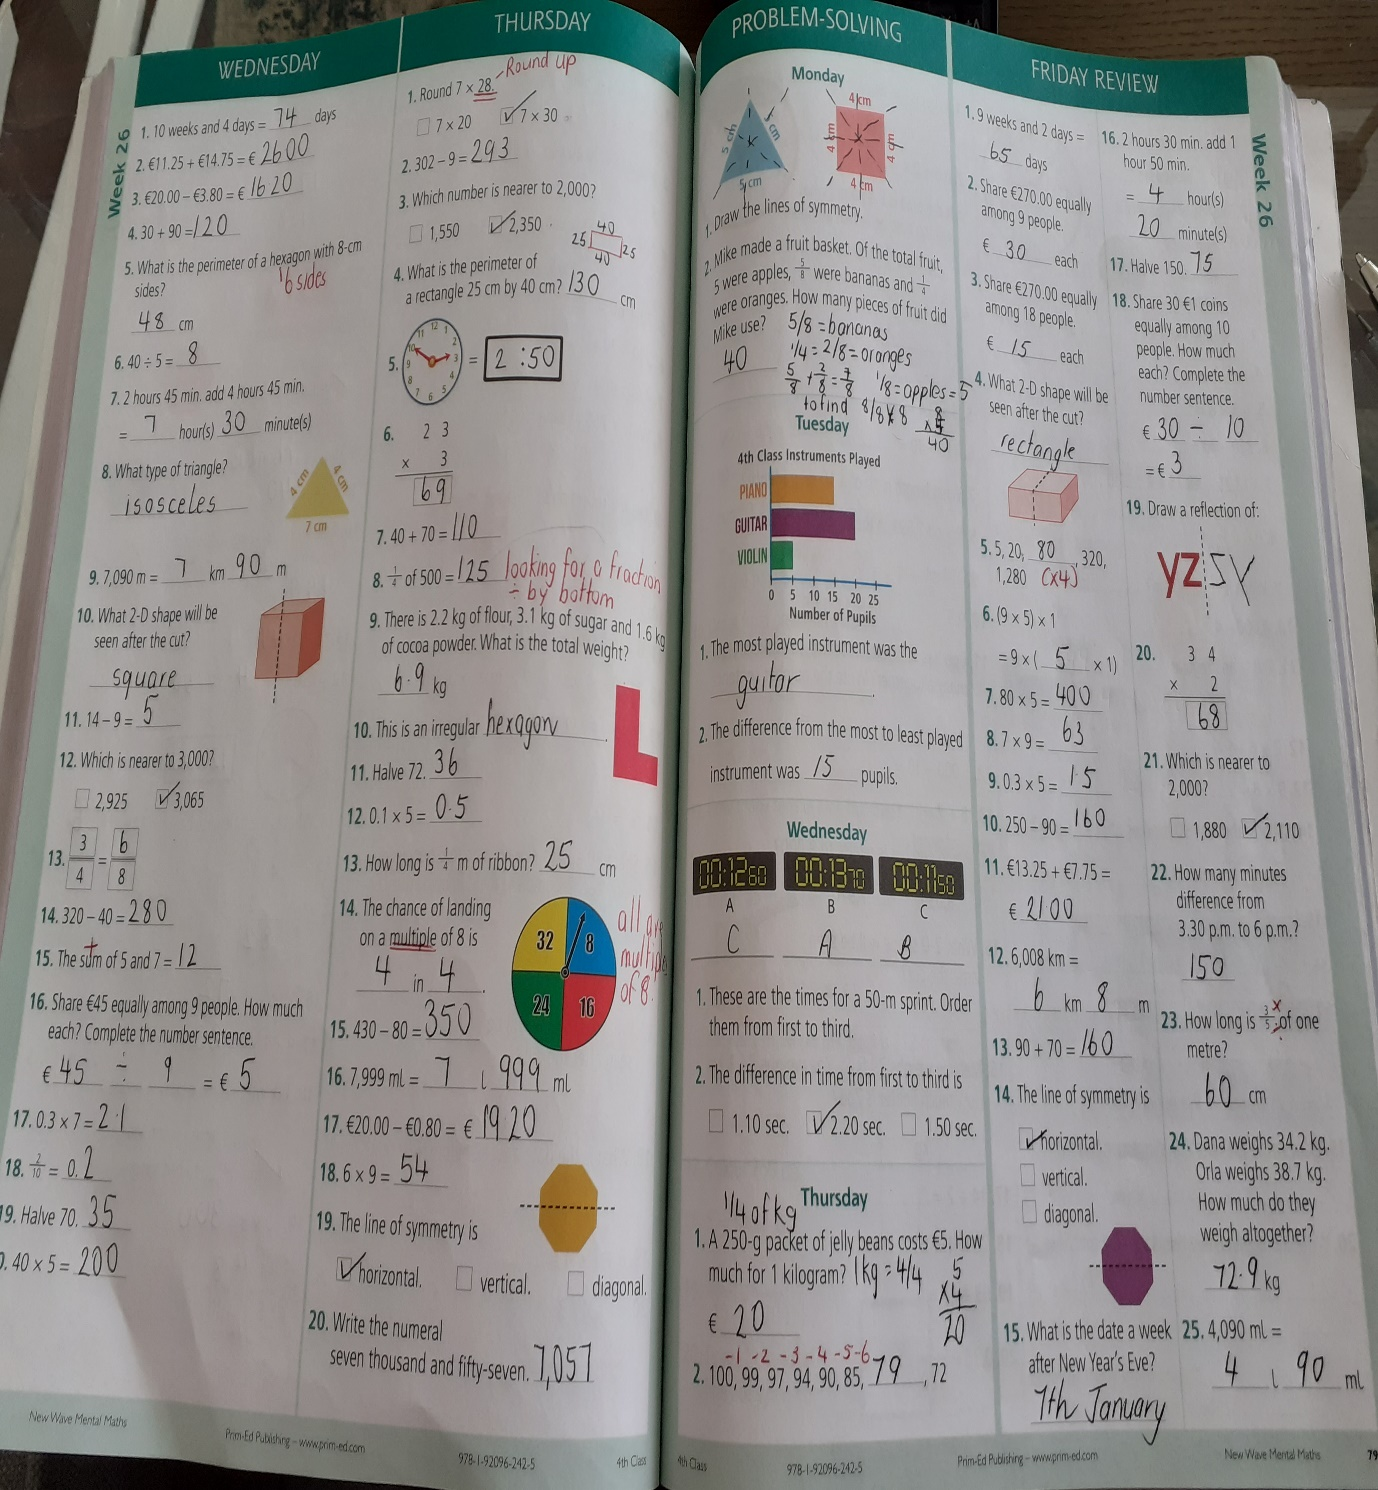 WEDNESDAY
Week 26
1. 10 weeks and 4 days = 74 days
2. €11.25 + €14.75 = € 2600
3. €20.00 – €3.80 = € 1620
4. 30 + 90 = 120
5. What is the perimeter of a hexagon with 8-cm
sides? 6 sides
48 cm
6. 40 ÷ 5 = 8
7. 2 hours 45 min. add 4 hours 45 min.
= 7 hour(s) 30 minute(s)
8. What type of triangle?
isosceles
4 cm
4 cm
7 cm
9. 7,090 m = 7 km 90 m
10. What 2-D shape will be
seen after the cut?
square
11. 14 – 9 = 5
12. Which is nearer to 3,000?
2,925 3,065
13. 3/4 = 6/8
14. 320 – 40 = 280
15. The sum of 5 and 7 = 12
+
16. Share €45 equally among 9 people. How much
each? Complete the number sentence.
€ 45 ÷ 9 = € 5
17. 0.3 x 7 = 2.1
18. 2/10 = 0.2
19. Halve 70. 35
0. 40 x 5 = 200
New Wave Mental Maths
Prim-Ed Publishing – www.prim-ed.com
THURSDAY
1. Round 7 x 28. Round up
7 x 20 7 x 30
2. 302 – 9 = 293
3. Which number is nearer to 2,000?
1,550 2,350
40
25 25
40
4. What is the perimeter of
a rectangle 25 cm by 40 cm? 130 cm
5. = 2 :50
6. 2 3
x 3
69
7. 40 + 70 = 110
8. 1/4 of 500 = 125 looking for a fraction
÷ by bottom
9. There is 2.2 kg of flour, 3.1 kg of sugar and 1.6 kg
of cocoa powder. What is the total weight?
6.9 kg
10. This is an irregular hexagon.
11. Halve 72. 36
12. 0.1 x 5 = 0.5
13. How long is 1/4 m of ribbon? 25 cm
14. The chance of landing
on a multiple of 8 is
4 in 4.
32 8
24 16
all are
multiple
of 8.
15. 430 – 80 = 350
16. 7,999 ml = 7 l 999 ml
17. €20.00 – €0.80 = € 1920
18. 6 x 9 = 54
19. The line of symmetry is
horizontal. vertical. diagonal.
20. Write the numeral
seven thousand and fifty-seven. 7,057
978-1-92096-242-5
4th Class
PROBLEM-SOLVING
Monday
5 cm
cm
5 cm
4 cm
4
4
4 cm
1. Draw the lines of symmetry.
2. Mike made a fruit basket. Of the total fruit,
5 were apples, 5/8 were bananas and 1/4
were oranges. How many pieces of fruit did
Mike use? 5/8 = bananas
40
1/4 = 2/8 = oranges
5/8 + 2/8 = 7/8 1/8 = apples = 5
to find 8/8 x 8
8
40
Tuesday
4th Class Instruments Played
PIANO
GUITAR
VIOLIN
0 5 10 15 20 25
Number of Pupils
1. The most played instrument was the
guitar.
2. The difference from the most to least played
instrument was 15 pupils.
Wednesday
00:12 60 00:13 70 00:11 50
A B C
C A B
1. These are the times for a 50-m sprint. Order
them from first to third.
2. The difference in time from first to third is
1.10 sec. 2.20 sec. 1.50 sec.
Thursday
1/4 of kg
1. A 250-g packet of jelly beans costs €5. How
much for 1 kilogram? 1kg = 4/4
€ 20
5
x4
20
-1 -2 -3 -4 -5 -6
2. 100, 99, 97, 94, 90, 85, 79, 72
4th Class
978-1-92096-242-5
FRIDAY REVIEW
Week 26
1. 9 weeks and 2 days =
65 days
2. Share €270.00 equally
among 9 people.
€ 30 each
3. Share €270.00 equally
among 18 people.
€ 15 each
4. What 2-D shape will be
seen after the cut?
rectangle
5. 5, 20, 80, 320,
1,280 (x4)
6. (9 x 5) x 1
= 9 x ( 5 x 1)
7. 80 x 5 = 400
8. 7 x 9 = 63
9. 0.3 x 5 = 1.5
10. 250 – 90 = 160
11. €13.25 + €7.75 =
€ 2100
12. 6,008 km =
6 km 8 m
13. 90 + 70 = 160
14. The line of symmetry is
horizontal.
vertical.
diagonal.
15. What is the date a week
after New Year's Eve?
7th January
16. 2 hours 30 min. add 1
hour 50 min.
= 4 hour(s)
20 minute(s)
17. Halve 150. 75
18. Share 30 €1 coins
equally among 10
people. How much
each? Complete the
number sentence.
€ 30 ÷ 10
= € 3
19. Draw a reflection of:
YZ
20. 3 4
x 2
68
21. Which is nearer to
2,000?
1,880 2,110
22. How many minutes
difference from
3.30 p.m. to 6 p.m.?
150
23. How long is 3/5 of one
metre?
x
÷
60 cm
24. Dana weighs 34.2 kg.
Orla weighs 38.7 kg.
How much do they
weigh altogether?
72.9 kg
25. 4,090 ml =
4 l 90 ml
Prim-Ed Publishing – www.prim-ed.com
New Wave Mental Maths
79